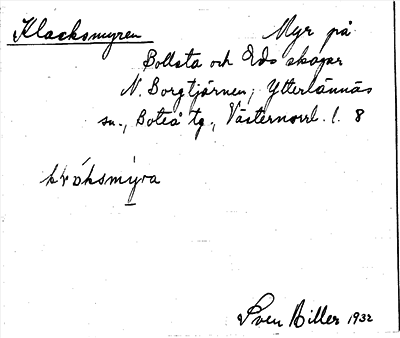 Klacksmyren
Myr på
Bollsta och Eds skogar
N. Borgtjärnen, Ytterlännäs
sn., Boteå tg., Västernorrl. l. 8
Sven Hiller 1932